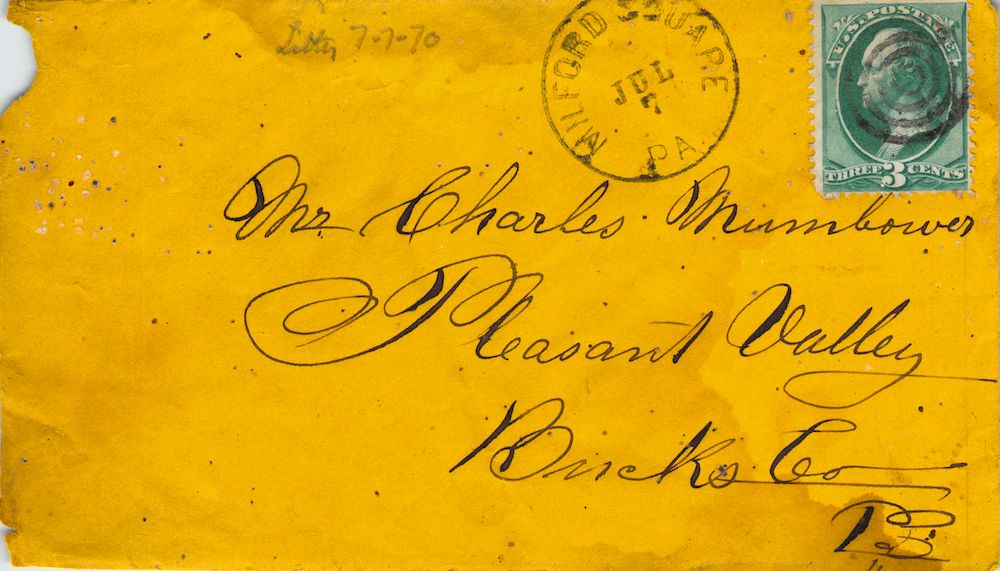 Libby 7-7-70
MILFORD SQUARE
JUL
7
PA.
U.S. POSTAGE
THREE 3 CENTS
Mr Charles Mumbower
Pleasant Valley
Bucks Co
Pa